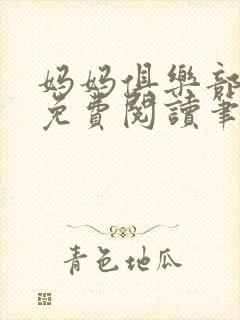 妈妈俱樂部
免費閱讀筆
青色地瓜